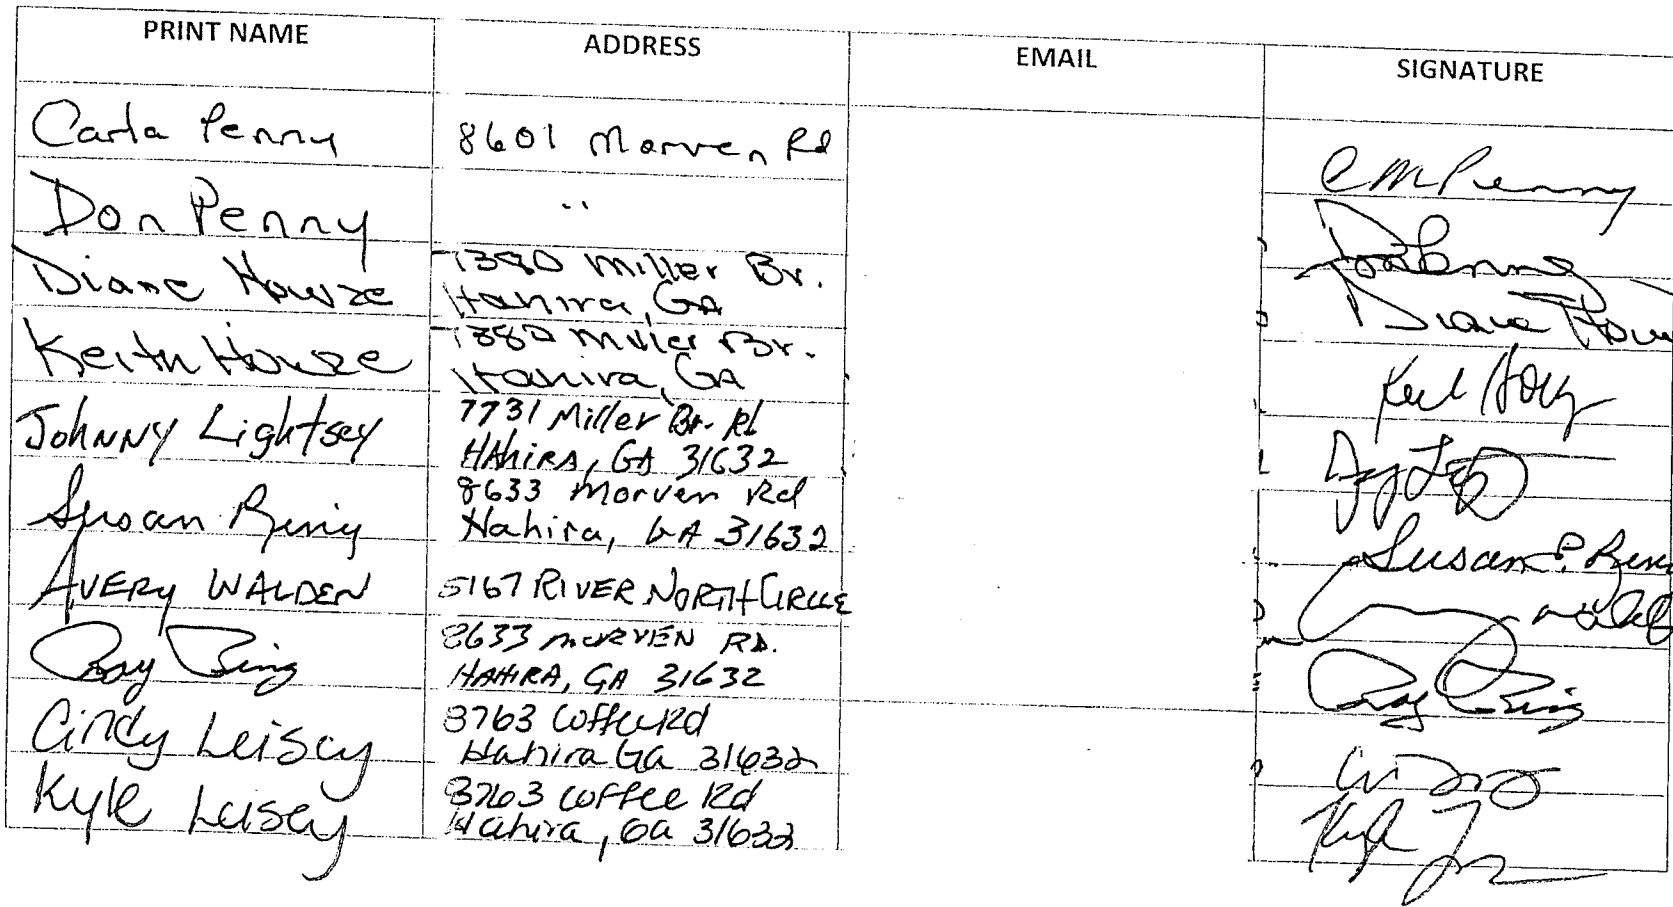 PRINT NAME ADDRESS EMAIL SIGNATURE
Carla Penny 8601 Morven Rd CM Penny
Don Penny " Don Penny
Diane Howze 7380 Miller Br.
Hahira, GA Diane How
Keith Howze 7380 Miller Br.
Hahira, GA
Johnny Lightsey 7731 Miller Br. Rd
HAhira, GA 31632
Susan Bing 8633 Morven Rd
Hahira, GA 31632 Susan P. Bing
AVERY WALDEN 5167 RIVER NORTH CIRCLE
Roy Bing 8633 MORVEN RD.
HAHIRA, GA 31632 Roy Bing
Cindy Leisey 8763 Coffee Rd
Hahira Ga 31632
Kyle Leisey 8763 Coffee Rd
Hahira, Ga 31632 Kyle